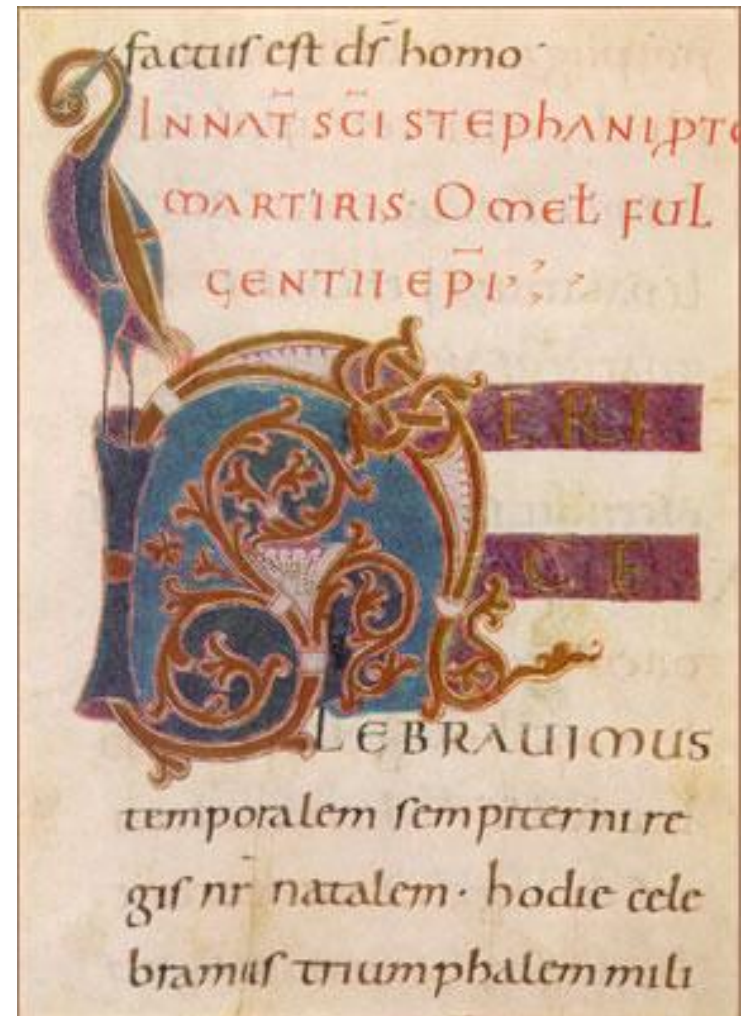 factus est ds̄ homo
IN NAT̄ SC̄I STEPHANI PTO
MARTIRIS· OMEƚ FUL
GENTII EP̄I
HERI
CE
LEBRAUIMUS
temporalem sempiterni re
gis nr̄ natalem· hodie cele
bramus triumphalem mili